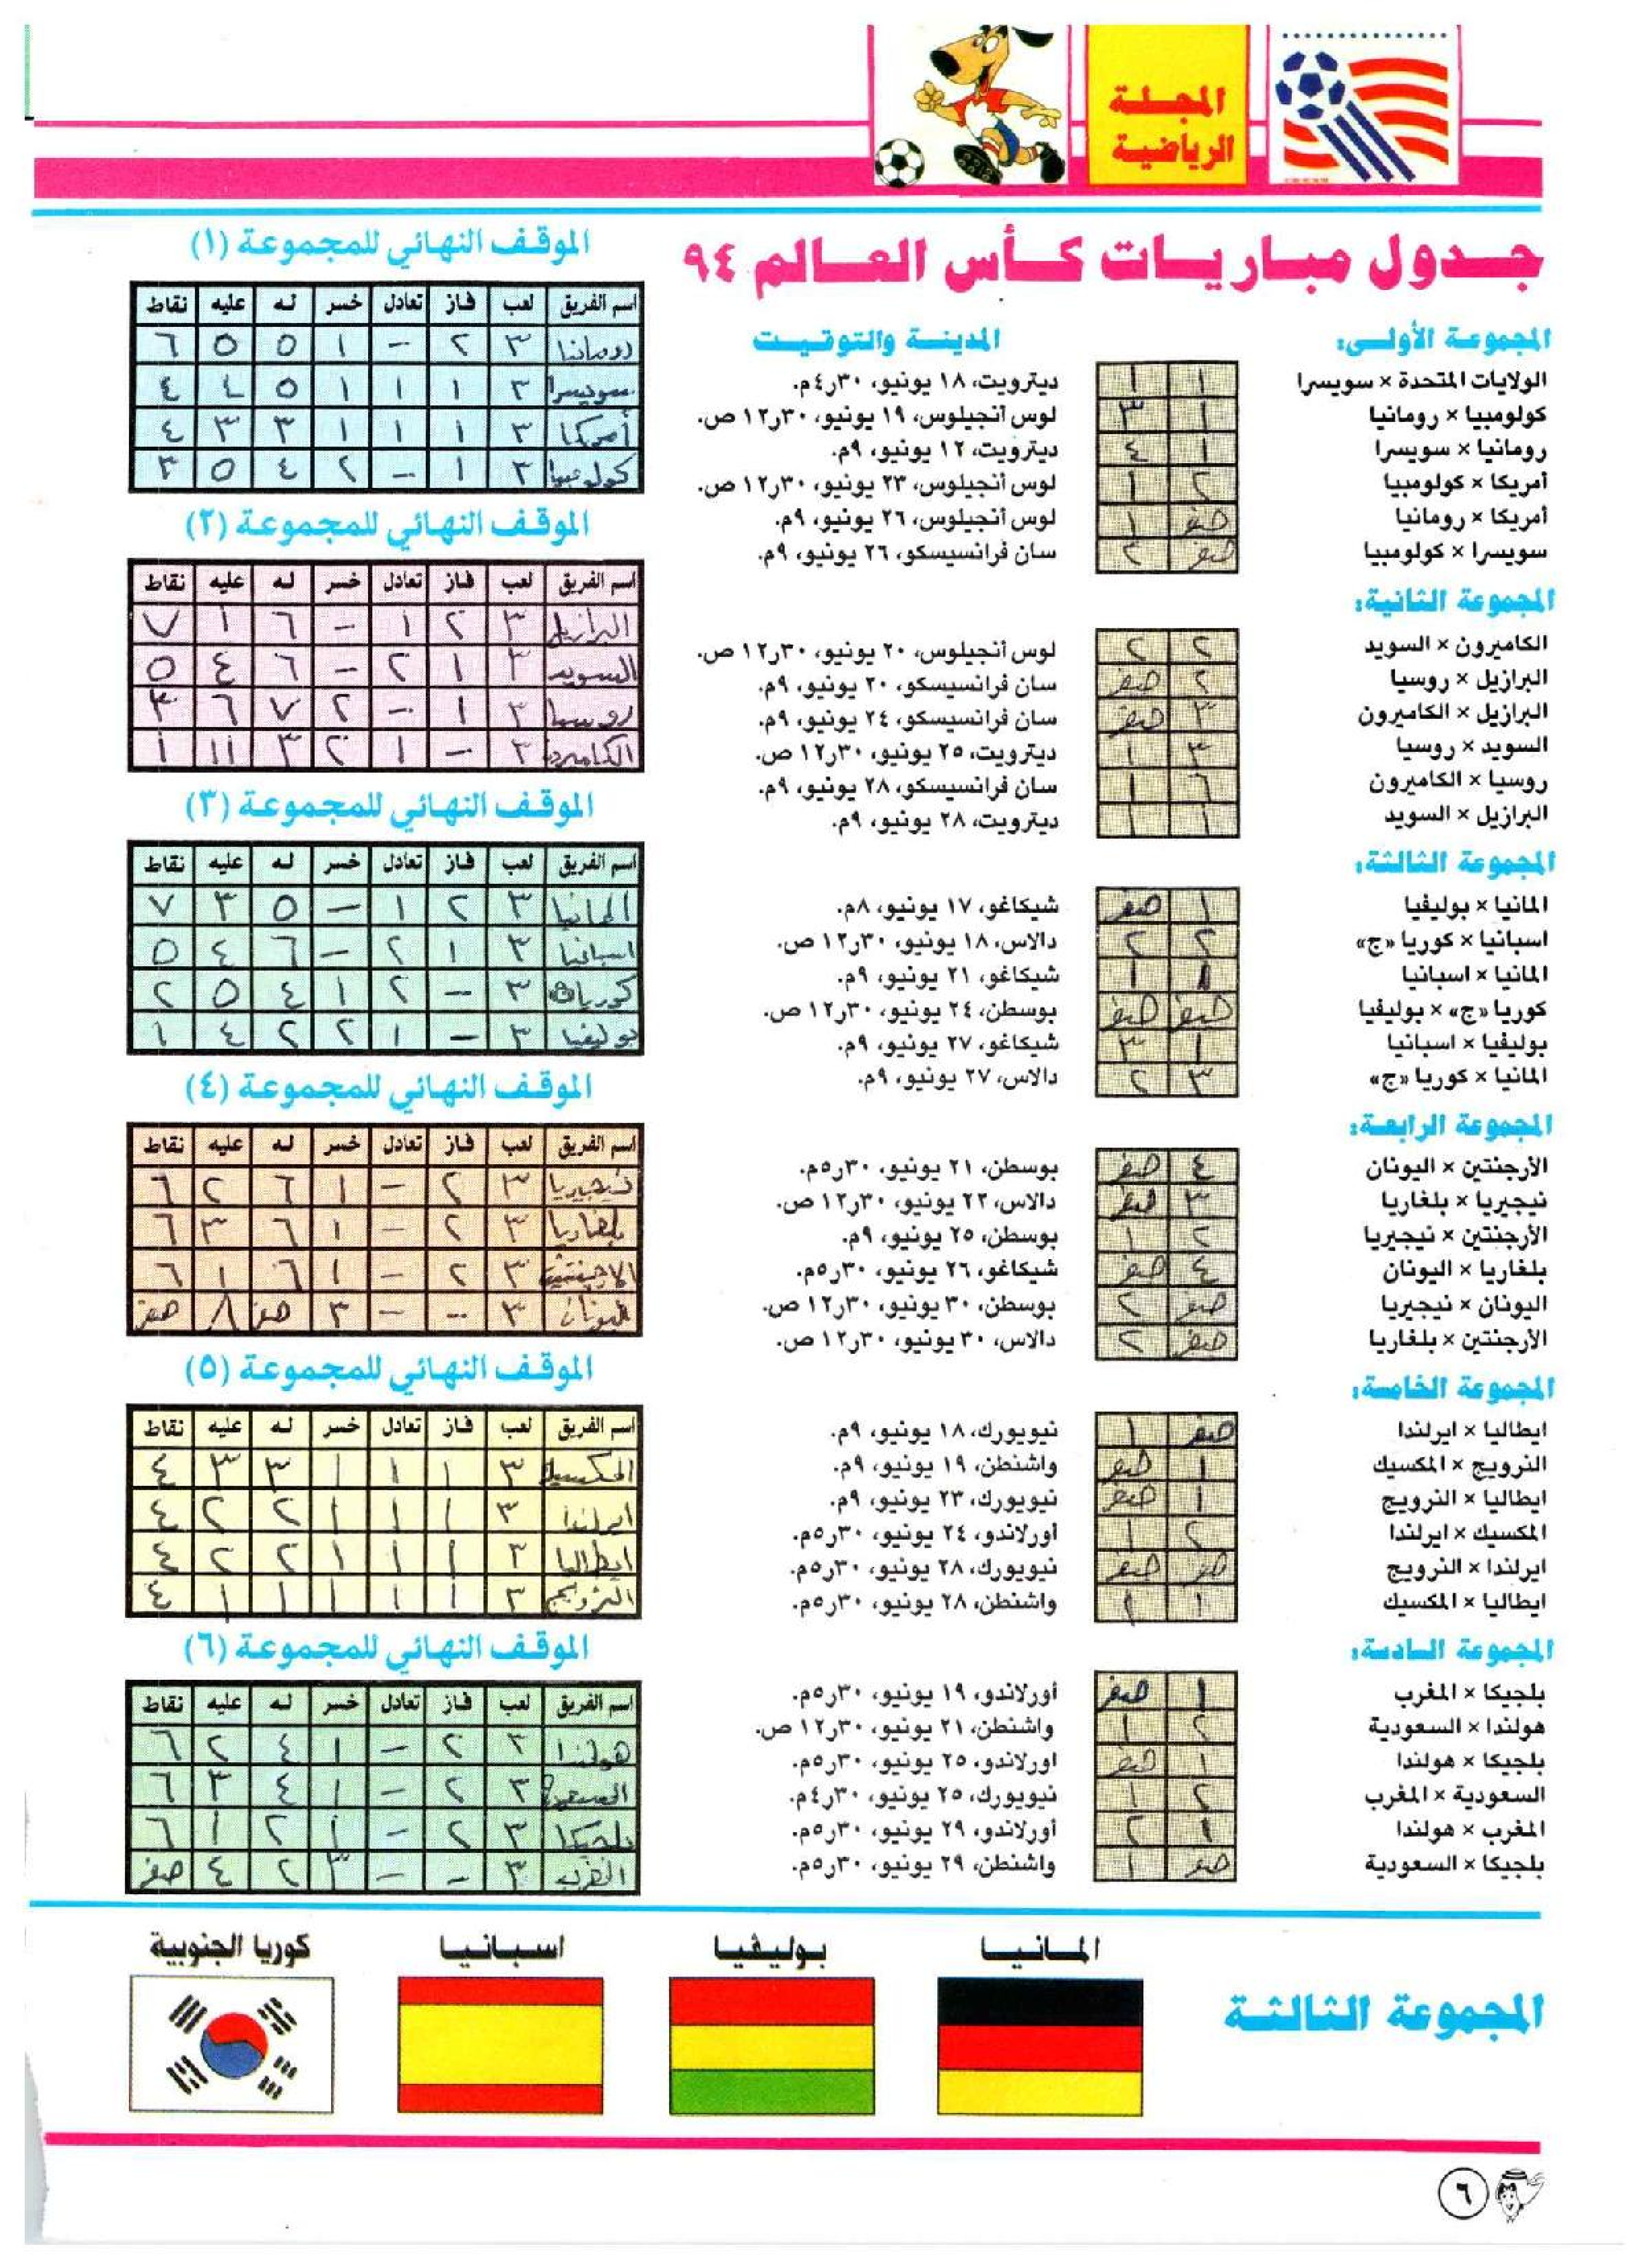 المجلة
الرياضية
جدول مباريات كأس العالم ٩٤
المجموعة الأولى:
المدينة والتوقيت
الولايات المتحدة × سويسرا ١ ١ ديترويت، ١٨ يونيو، ٤٫٣٠م.
كولومبيا × رومانيا ١ ٣ لوس أنجيلوس، ١٩ يونيو، ١٢٫٣٠ ص.
رومانيا × سويسرا ١ ٤ ديترويت، ١٢ يونيو، ٩م.
أمريكا × كولومبيا ٢ ١ لوس أنجيلوس، ٢٣ يونيو، ١٢٫٣٠ ص.
أمريكا × رومانيا صفر ١ لوس أنجيلوس، ٢٦ يونيو، ٩م.
سويسرا × كولومبيا صفر ٢ سان فرانسيسكو، ٢٦ يونيو، ٩م.
المجموعة الثانية:
الكاميرون × السويد ٢ ٢ لوس أنجيلوس، ٢٠ يونيو، ١٢٫٣٠ ص.
البرازيل × روسيا ٢ صفر سان فرانسيسكو، ٢٠ يونيو، ٩م.
البرازيل × الكاميرون ٣ صفر سان فرانسيسكو، ٢٤ يونيو، ٩م.
السويد × روسيا ٣ ١ ديترويت، ٢٥ يونيو، ١٢٫٣٠ ص.
روسيا × الكاميرون ٦ ١ سان فرانسيسكو، ٢٨ يونيو، ٩م.
البرازيل × السويد ١ ١ ديترويت، ٢٨ يونيو، ٩م.
المجموعة الثالثة:
المانيا × بوليفيا ١ صفر شيكاغو، ١٧ يونيو، ٨م.
اسبانيا × كوريا «ج» ٢ ٢ دالاس، ١٨ يونيو، ١٢٫٣٠ ص.
المانيا × اسبانيا ١ ١ شيكاغو، ٢١ يونيو، ٩م.
كوريا «ج» × بوليفيا صفر صفر بوسطن، ٢٤ يونيو، ١٢٫٣٠ ص.
بوليفيا × اسبانيا ١ ٣ شيكاغو، ٢٧ يونيو، ٩م.
المانيا × كوريا «ج» ٣ ٢ دالاس، ٢٧ يونيو، ٩م.
المجموعة الرابعة:
الأرجنتين × اليونان ٤ صفر بوسطن، ٢١ يونيو، ٥٫٣٠م.
نيجيريا × بلغاريا ٣ صفر دالاس، ٢٢ يونيو، ١٢٫٣٠ ص.
الأرجنتين × نيجيريا ٢ ١ بوسطن، ٢٥ يونيو، ٩م.
بلغاريا × اليونان ٤ صفر شيكاغو، ٢٦ يونيو، ٥٫٣٠م.
اليونان × نيجيريا صفر ٢ بوسطن، ٣٠ يونيو، ١٢٫٣٠ ص.
الأرجنتين × بلغاريا صفر ٢ دالاس، ٣٠ يونيو، ١٢٫٣٠ ص.
المجموعة الخامسة:
ايطاليا × ايرلندا صفر ١ نيويورك، ١٨ يونيو، ٩م.
النرويج × المكسيك ١ صفر واشنطن، ١٩ يونيو، ٩م.
ايطاليا × النرويج ١ صفر نيويورك، ٢٣ يونيو، ٩م.
المكسيك × ايرلندا ٢ ١ أورلاندو، ٢٤ يونيو، ٥٫٣٠م.
ايرلندا × النرويج صفر صفر نيويورك، ٢٨ يونيو، ٥٫٣٠م.
ايطاليا × المكسيك ١ ١ واشنطن، ٢٨ يونيو، ٥٫٣٠م.
المجموعة السادسة:
بلجيكا × المغرب ١ صفر أورلاندو، ١٩ يونيو، ٥٫٣٠م.
هولندا × السعودية ٢ ١ واشنطن، ٢١ يونيو، ١٢٫٣٠ ص.
بلجيكا × هولندا ١ صفر اورلاندو، ٢٥ يونيو، ٥٫٣٠م.
السعودية × المغرب ٢ ١ نيويورك، ٢٥ يونيو، ٤٫٣٠م.
المغرب × هولندا ١ ٢ أورلاندو، ٢٩ يونيو، ٥٫٣٠م.
بلجيكا × السعودية صفر ١ واشنطن، ٢٩ يونيو، ٥٫٣٠م.
الموقف النهائي للمجموعة (١)
اسم الفريق لعب فاز تعادل خسر له عليه نقاط
رومانيا ٣ ٢ – ١ ٥ ٥ ٦
سويسرا ٣ ١ ١ ١ ٥ ٤ ٤
أمريكا ٣ ١ ١ ١ ٣ ٣ ٤
كولومبيا ٣ ١ – ٢ ٤ ٥ ٣
الموقف النهائي للمجموعة (٢)
اسم الفريق لعب فاز تعادل خسر له عليه نقاط
البرازيل ٣ ٢ ١ – ٦ ١ ٧
السويد ٣ ١ ٢ – ٦ ٤ ٥
روسيا ٣ ١ – ٢ ٧ ٦ ٣
الكاميرون ٣ – ١ ٢ ٣ ١١ ١
الموقف النهائي للمجموعة (٣)
اسم الفريق لعب فاز تعادل خسر له عليه نقاط
المانيا ٣ ٢ ١ – ٥ ٣ ٧
اسبانيا ٣ ١ ٢ – ٦ ٤ ٥
كوريا ٣ – ٢ ١ ٤ ٥ ٢
بوليفيا ٣ – ١ ٢ ٢ ٤ ١
الموقف النهائي للمجموعة (٤)
اسم الفريق لعب فاز تعادل خسر له عليه نقاط
نيجيريا ٣ ٢ – ١ ٦ ٢ ٦
بلغاريا ٣ ٢ – ١ ٦ ٣ ٦
الارجنتين ٣ ٢ – ١ ٦ ١ ٦
اليونان ٣ – – ٣ صفر ٨ صفر
الموقف النهائي للمجموعة (٥)
اسم الفريق لعب فاز تعادل خسر له عليه نقاط
المكسيك ٣ ١ ١ ١ ٣ ٣ ٤
ايرلندا ٣ ١ ١ ١ ٢ ٢ ٤
ايطاليا ٣ ١ ١ ١ ٢ ٢ ٤
النرويج ٣ ١ ١ ١ ١ ١ ٤
الموقف النهائي للمجموعة (٦)
اسم الفريق لعب فاز تعادل خسر له عليه نقاط
هولندا ٣ ٢ – ١ ٤ ٢ ٦
السعودية ٣ ٢ – ١ ٤ ٣ ٦
بلجيكا ٣ ٢ – ١ ٢ ١ ٦
المغرب ٣ – – ٣ ٢ ٤ صفر
المجموعة الثالثة
المانيا
بوليفيا
اسبانيا
كوريا الجنوبية
٦